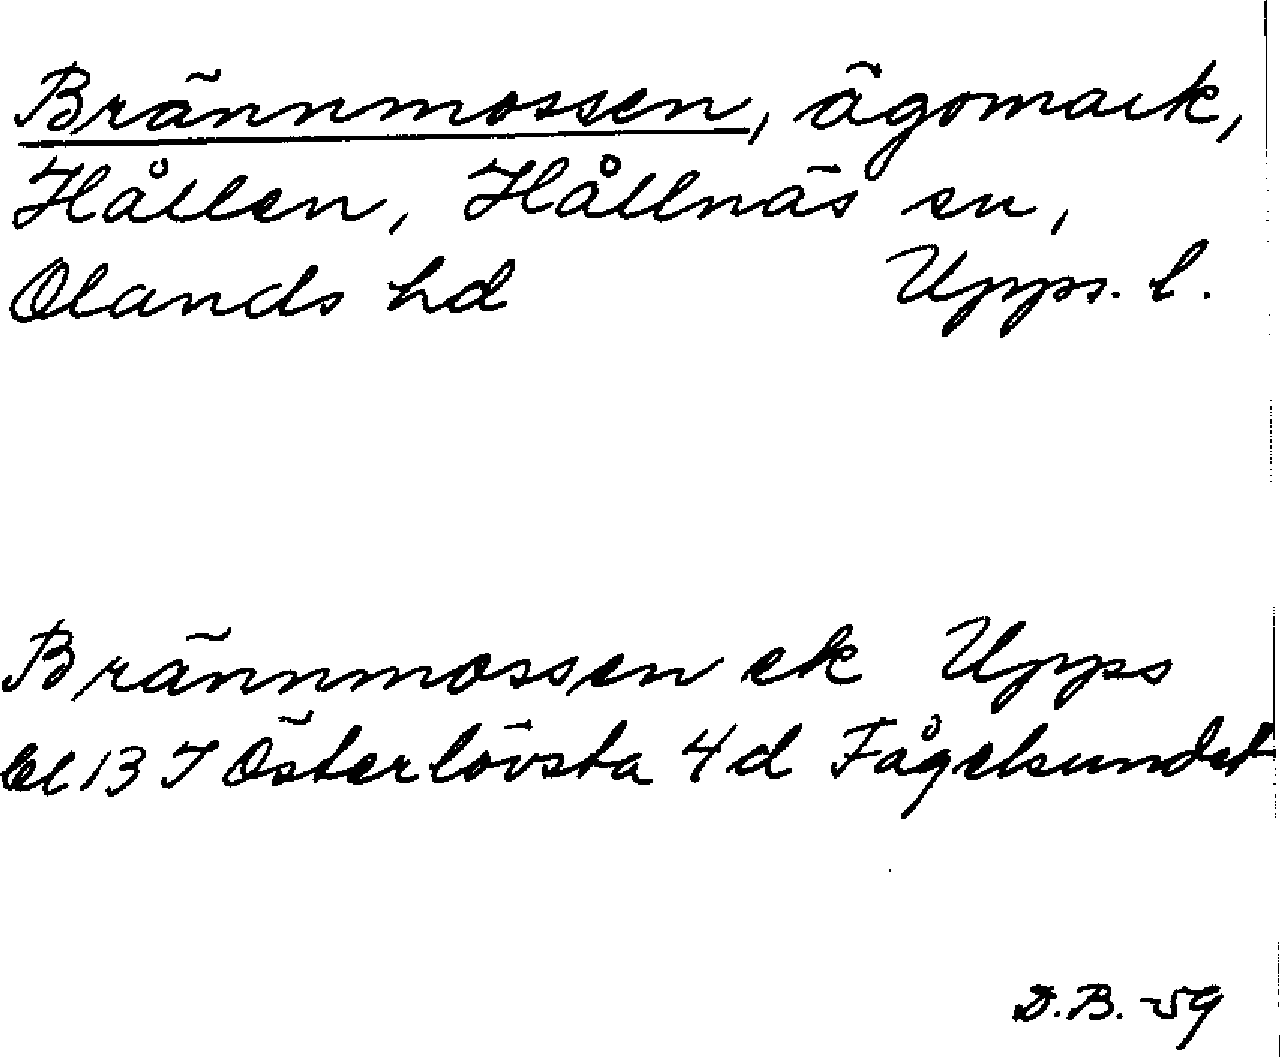 Brännmossen, ägomark,
Hållen, Hållnäs sn,
Olands hd Upps. l.
Brännmossen ek Upps
bl 13 I Österlövsta 4d Fågelsundet
D.B. -59